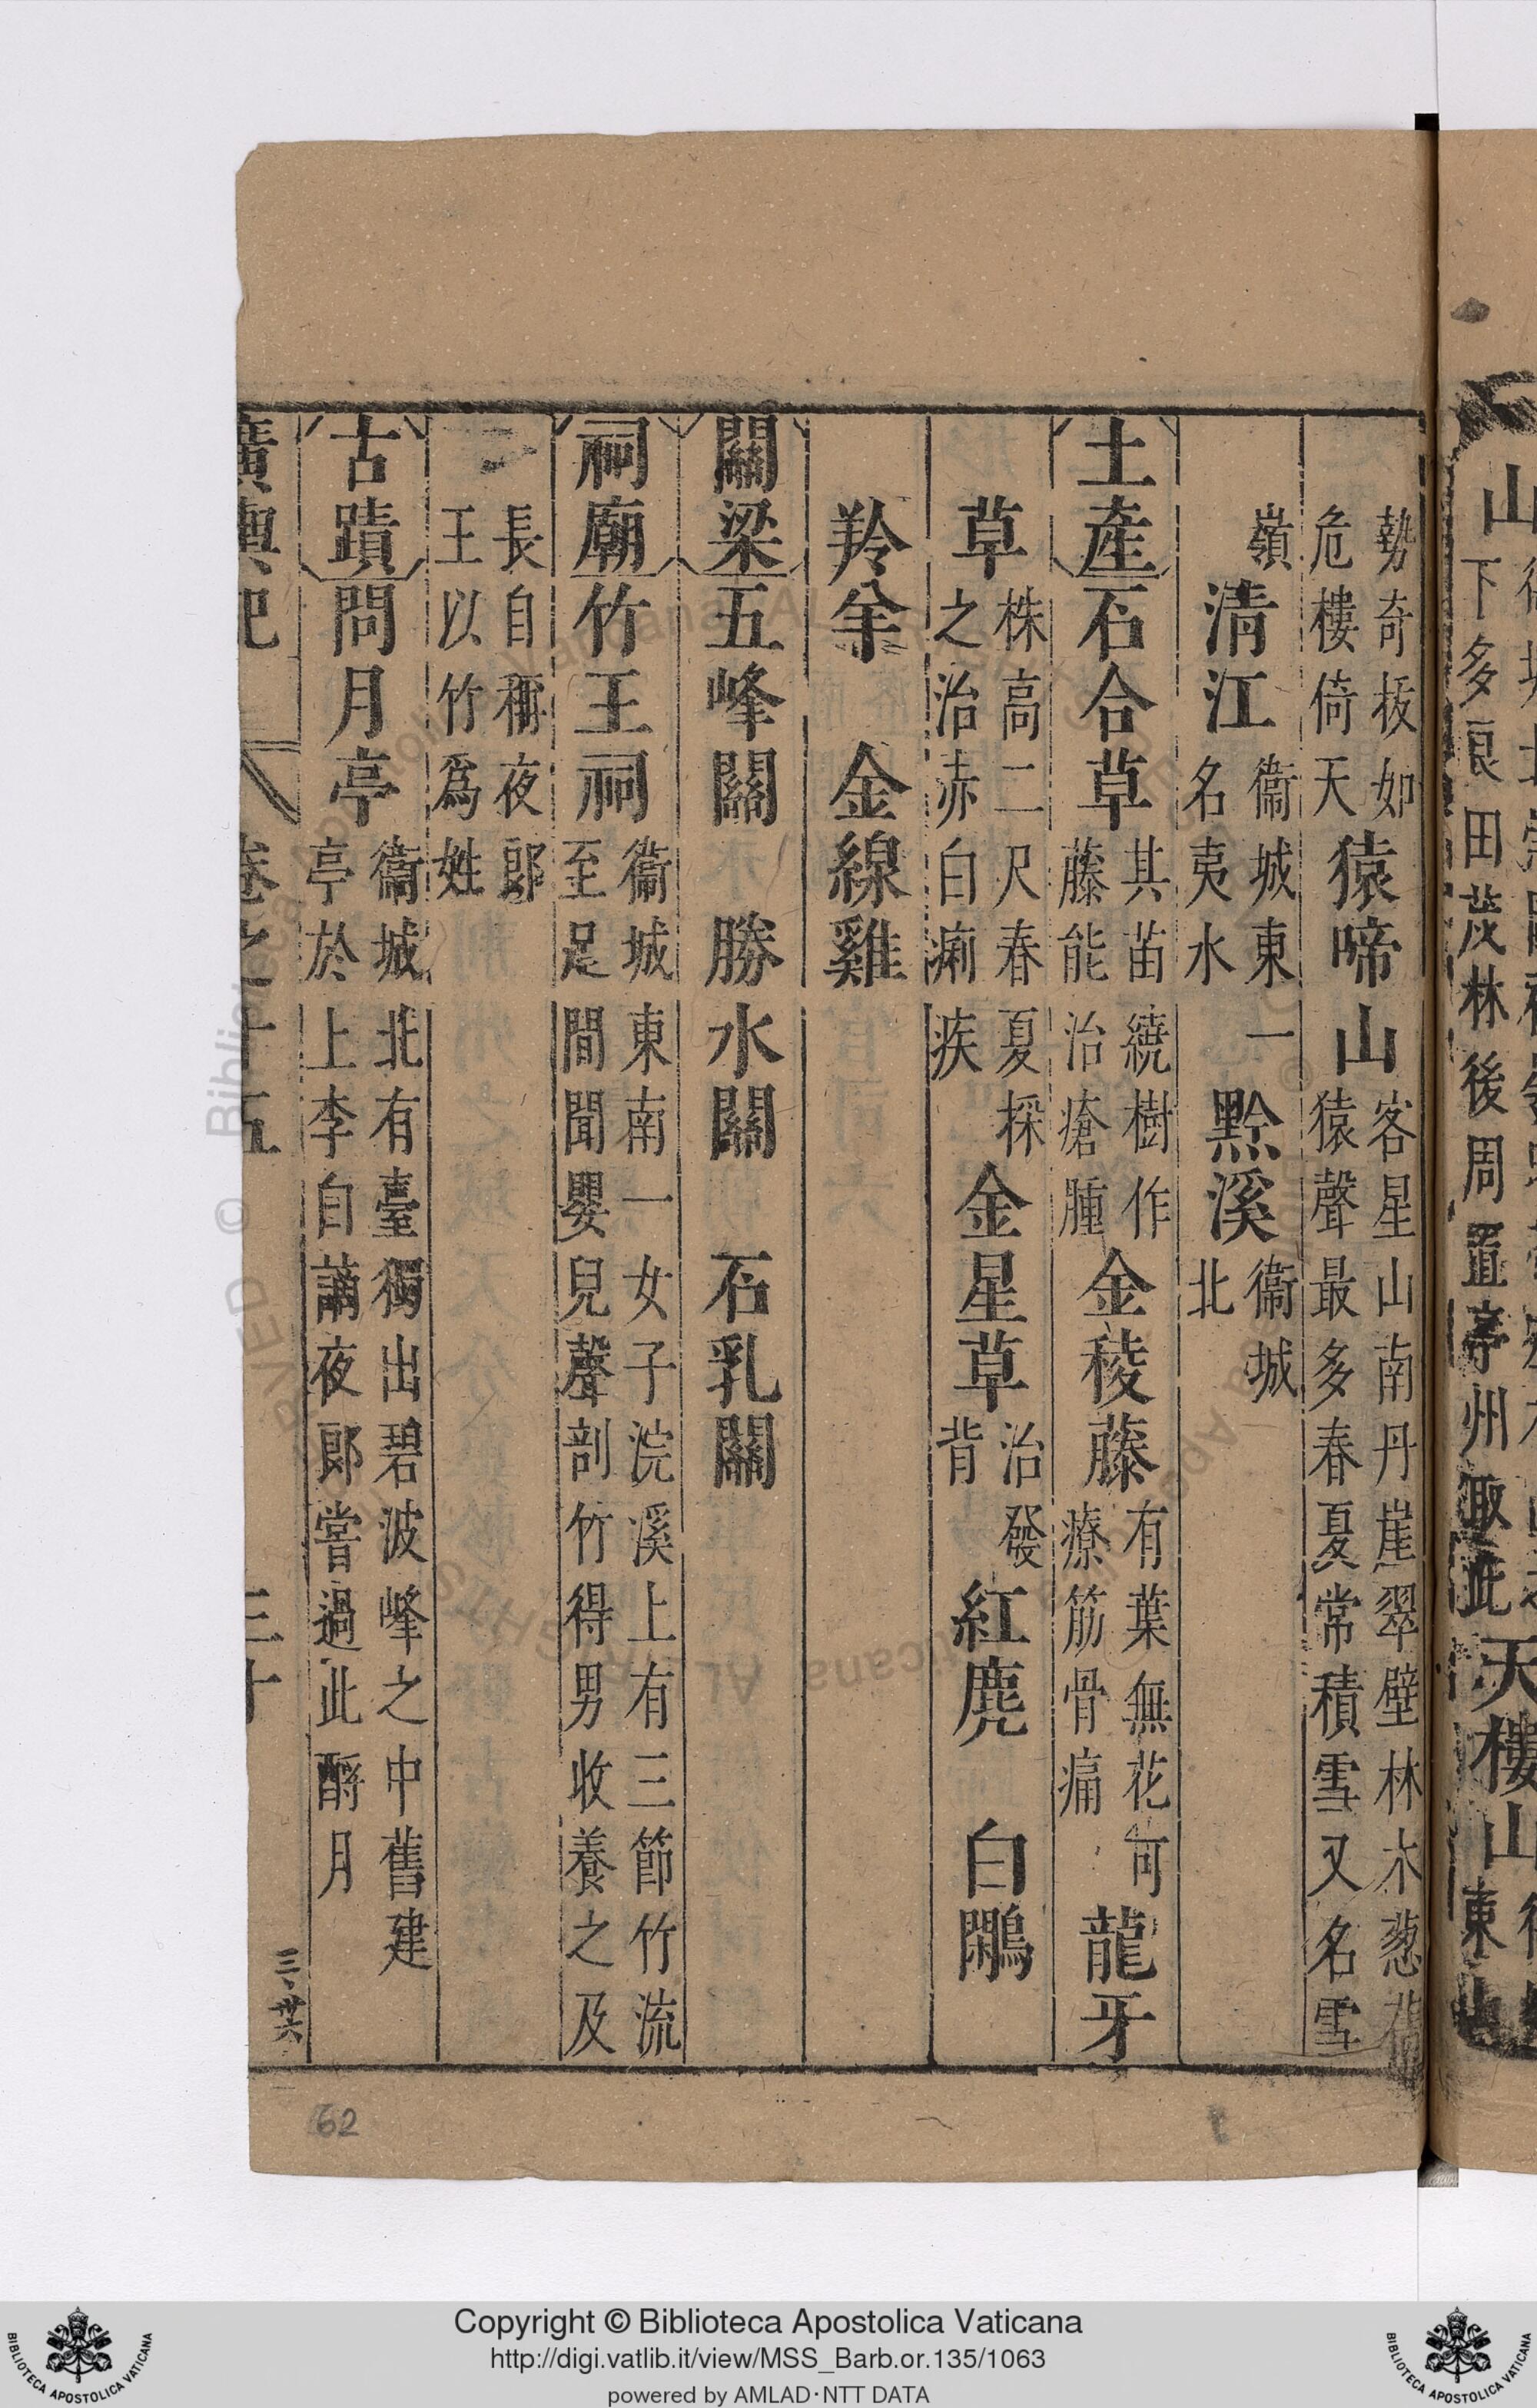 勢奇拔如
危樓倚天
猿啼山
客星山南丹崖翠壁林木葱蒨
猿聲最多春夏常積雪又名雪
嶺
清江
衞城東一
名夷水
黔溪
衞城
北
土産
石合草
其苗繞樹作
藤能治瘡腫
金稜藤
有葉無花可
療筋骨痛
龍牙
草
株高二尺春夏採
之治赤白痢疾
金星草
治發
背
紅麂 白鷴
羚羊 金線雞
關梁
五峰關 勝水關 石乳關
祠廟
竹王祠
衞城東南一女子浣溪上有三節竹流
至足間聞嬰兒聲剖竹得男收養之及
長自稱夜郎
王以竹爲姓
古蹟
問月亭
衞城北有臺獨出碧波峰之中舊建
亭於上李自謫夜郎嘗過此酹月
廣輿記 卷之十五 三十
三、廿六
62
山
下多良田茂林後周置亭州取此
天樓山
東
Copyright © Biblioteca Apostolica Vaticana
http://digi.vatlib.it/view/MSS_Barb.or.135/1063
powered by AMLAD·NTT DATA
BIBLIOTECA APOSTOLICA VATICANA
BIBLIOTECA APOSTOLICA VATICANA